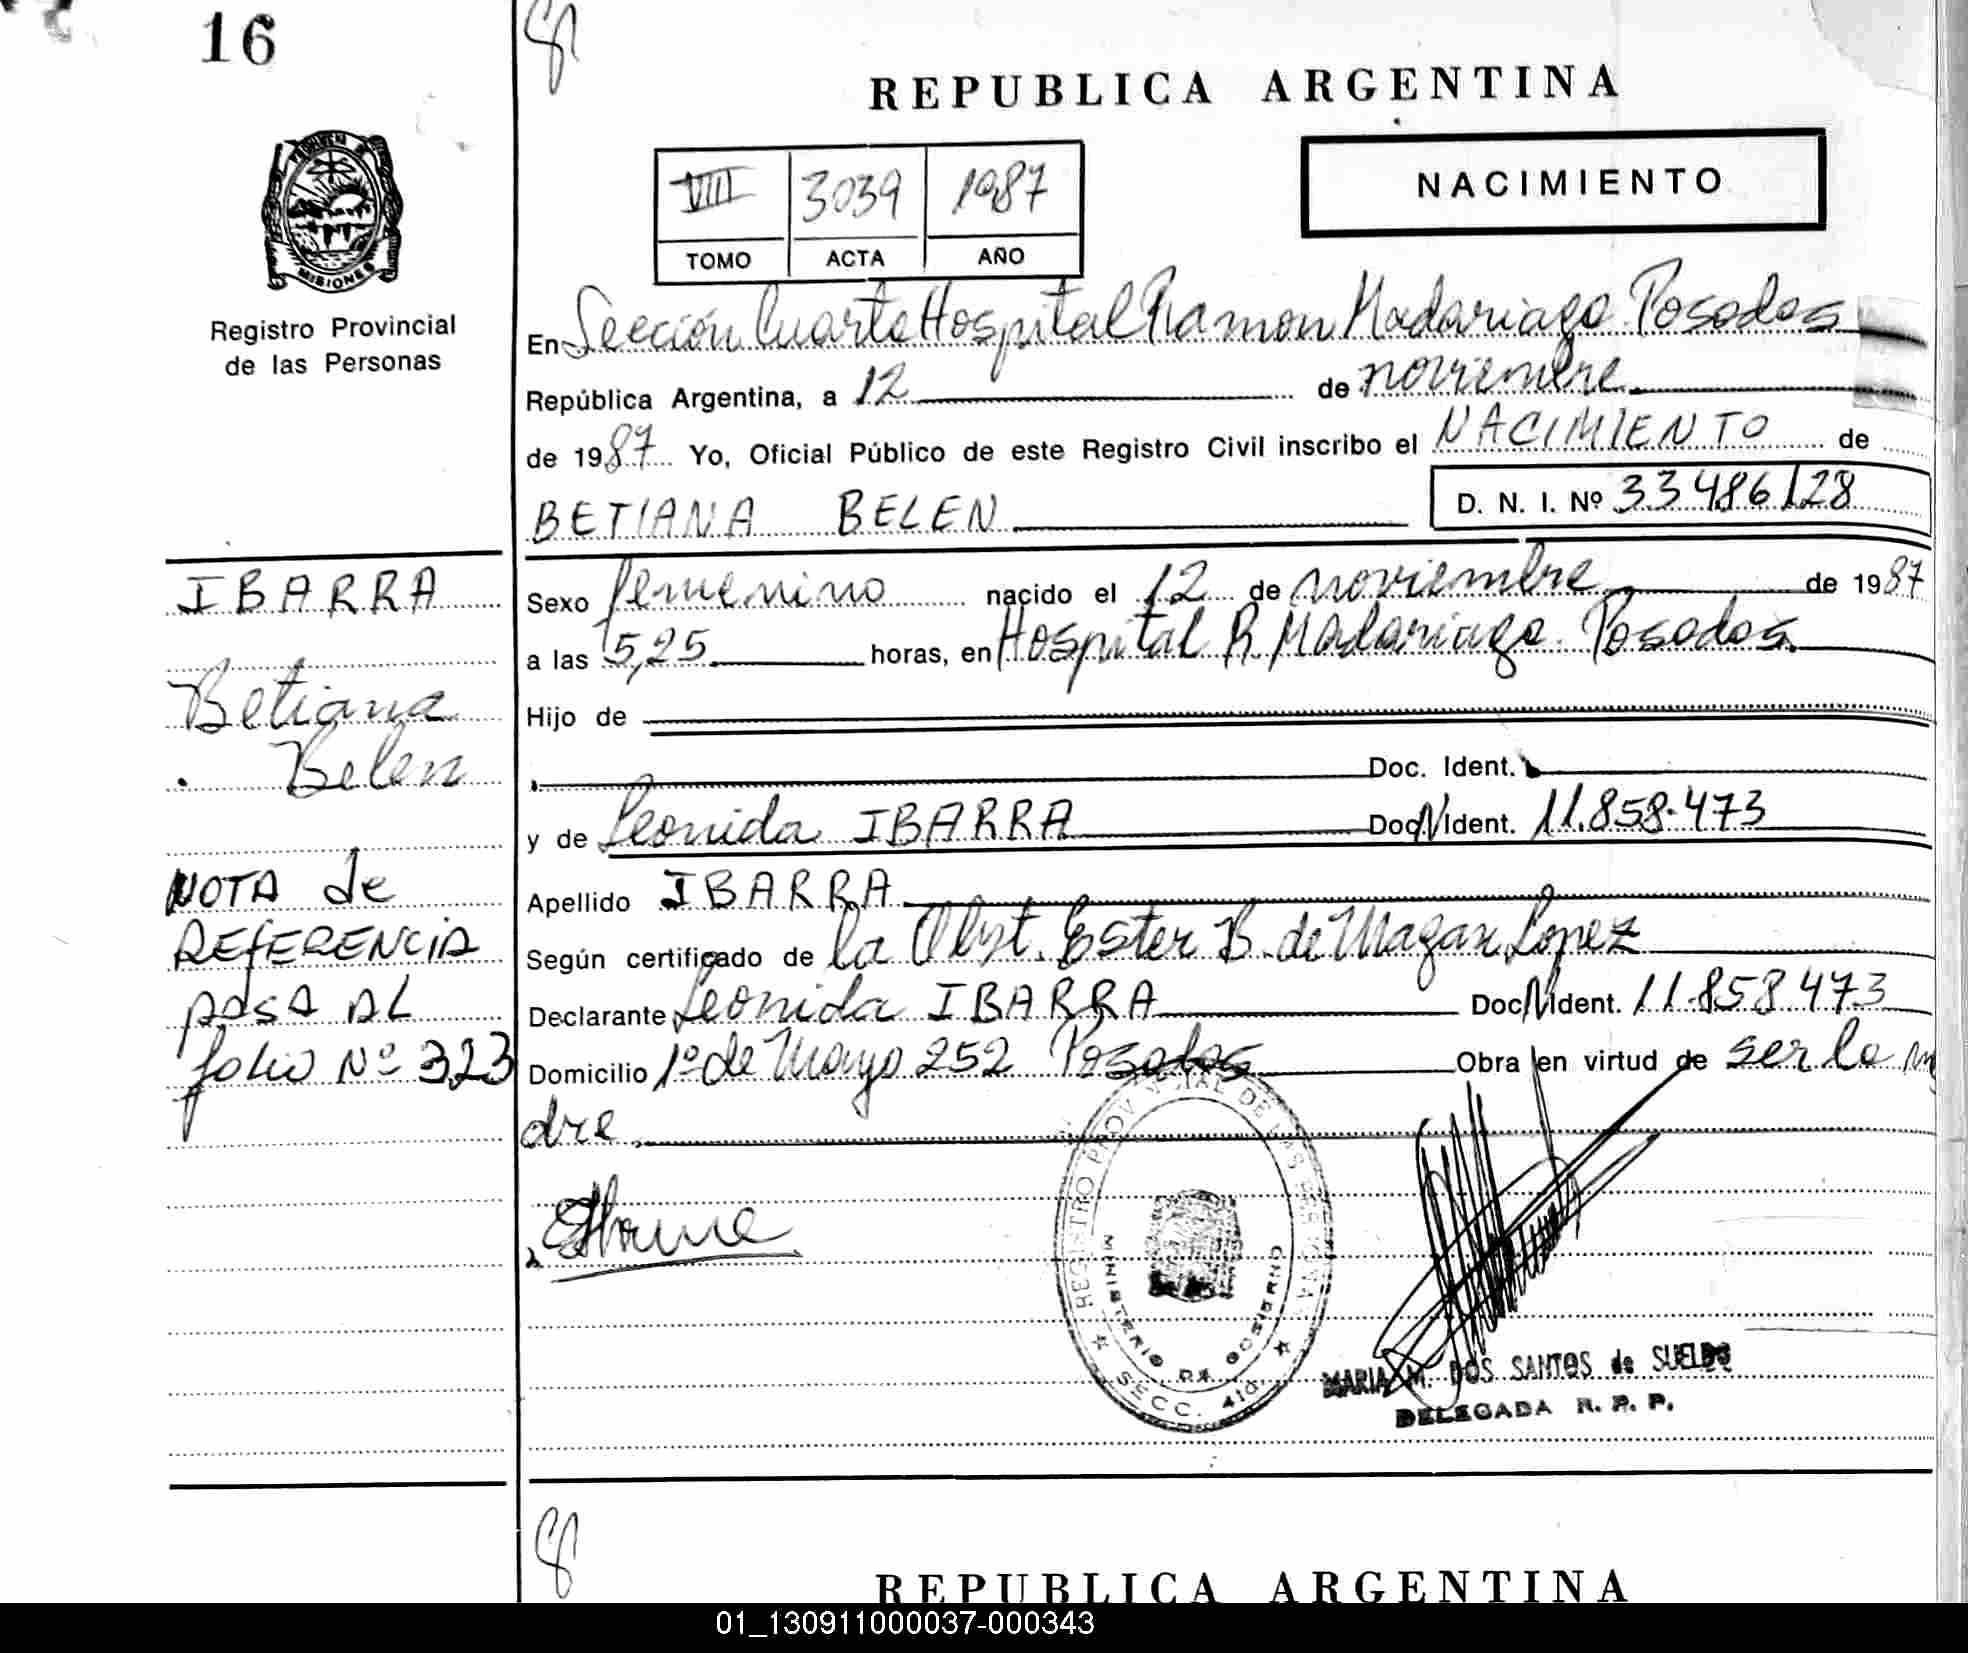 16
REPUBLICA ARGENTINA
VIII 3039 1987
TOMO ACTA AÑO
NACIMIENTO
PROVINCIA DE MISIONES
Registro Provincial
de las Personas
En Sección Cuarta Hospital Ramon Madariaga Posadas
República Argentina, a 12 de noviembre
de 1987 Yo, Oficial Público de este Registro Civil inscribo el NACIMIENTO de
BETIANA BELEN D. N. I. Nº 33486128
IBARRA
Betiana
Belen
NOTA de
REFERENCIA
pasa AL
folio Nº 323
Sexo femenino nacido el 12 de noviembre de 1987
a las 5,25 horas, en Hospital R. Madariaga. Posadas.
Hijo de
Doc. Ident.
y de Leonida IBARRA Doc. N Ident. 11.858.473
Apellido IBARRA
Según certificado de la Obst. Ester B. de Magax Lopez
Declarante Leonida IBARRA Doc. N Ident. 11.858.473
Domicilio 1º de Mayo 252 Posadas Obra en virtud de ser la ma
dre.
REGISTRO PROVINCIAL DE LAS PERSONAS
MINISTERIO DE GOBIERNO
SECC. 4ta.
MARIA M. DOS SANTOS de SUELDO
DELEGADA R. P. P.
REPUBLICA ARGENTINA
01_130911000037-000343